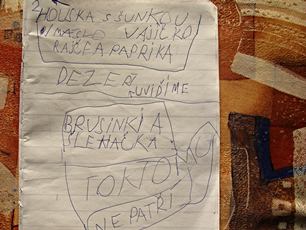 2 HOUSKA S ŠUNKOU
MASLO VAJÍČKO
RAJČE A PAPRIKA
DEZERT
UVIDÍME
BRUSINKI A
ŠLEHAČKA
TOKTOMU
NEPATŘÍ